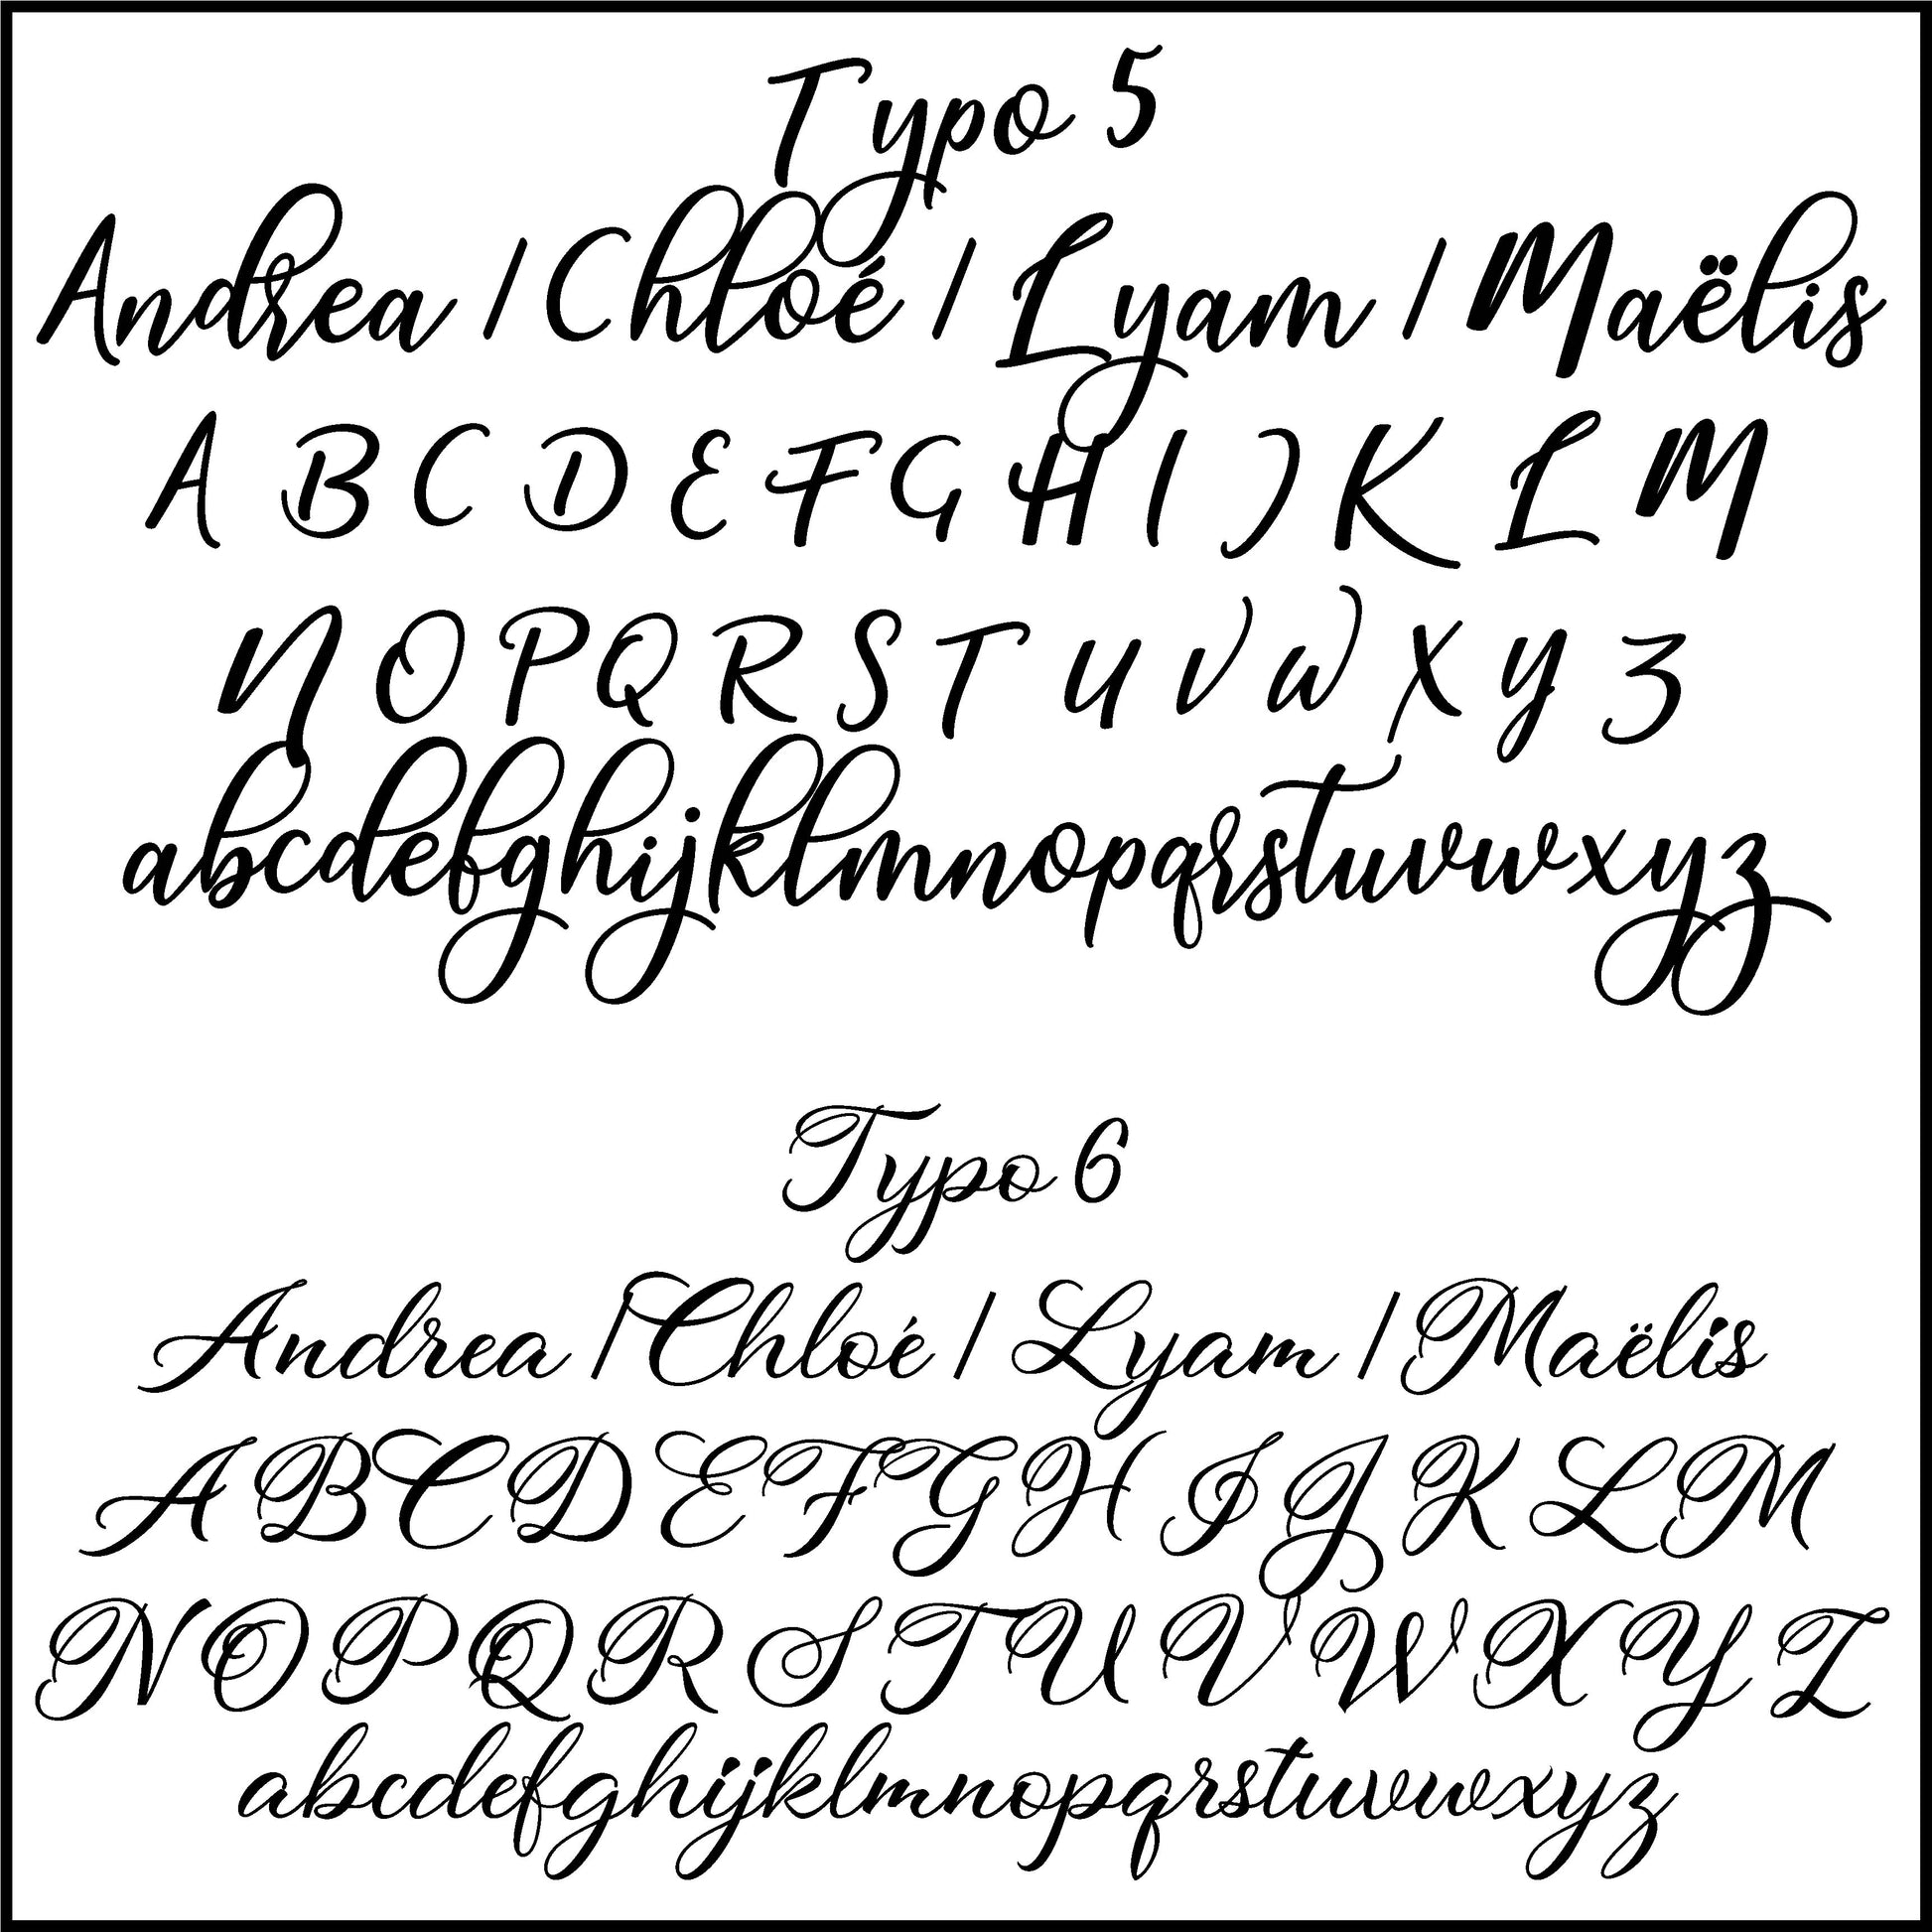 Typo 5
Andrea / Chloé / Lyam / Maëlis
A B C D E F G H I J K L M
N O P Q R S T U V W X Y Z
abcdefghijklmnopqrstuvwxyz
Typo 6
Andrea / Chloé / Lyam / Maëlis
A B C D E F G H I J K L M
N O P Q R S T U V W X Y Z
abcdefghijklmnopqrstuvwxyz